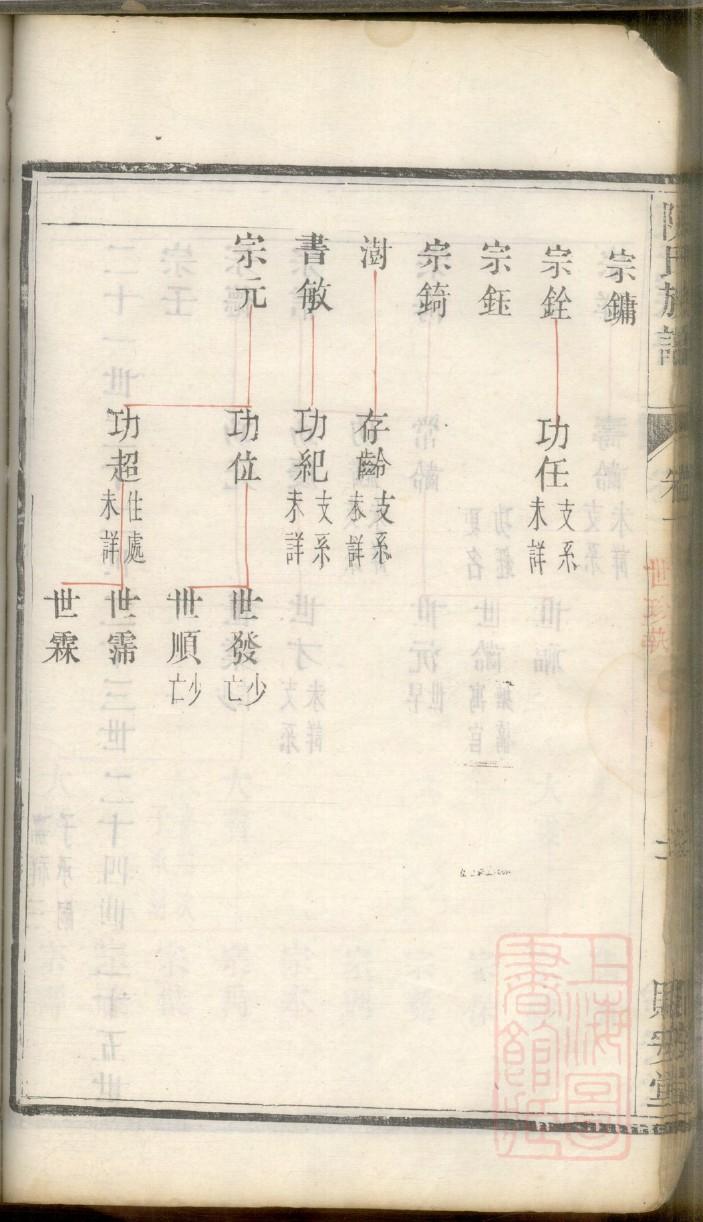 陳氏族譜
卷一
世珍執
思安堂
宗鏞
宗銓
宗鈺
宗錡
澍
書敏
宗元
功任 支系未詳
存齡 支系未詳
功紀 支系未詳
功位
功超 住處未詳
世發 少亡
世順 少亡
世霈
世霖
上海圖書館藏